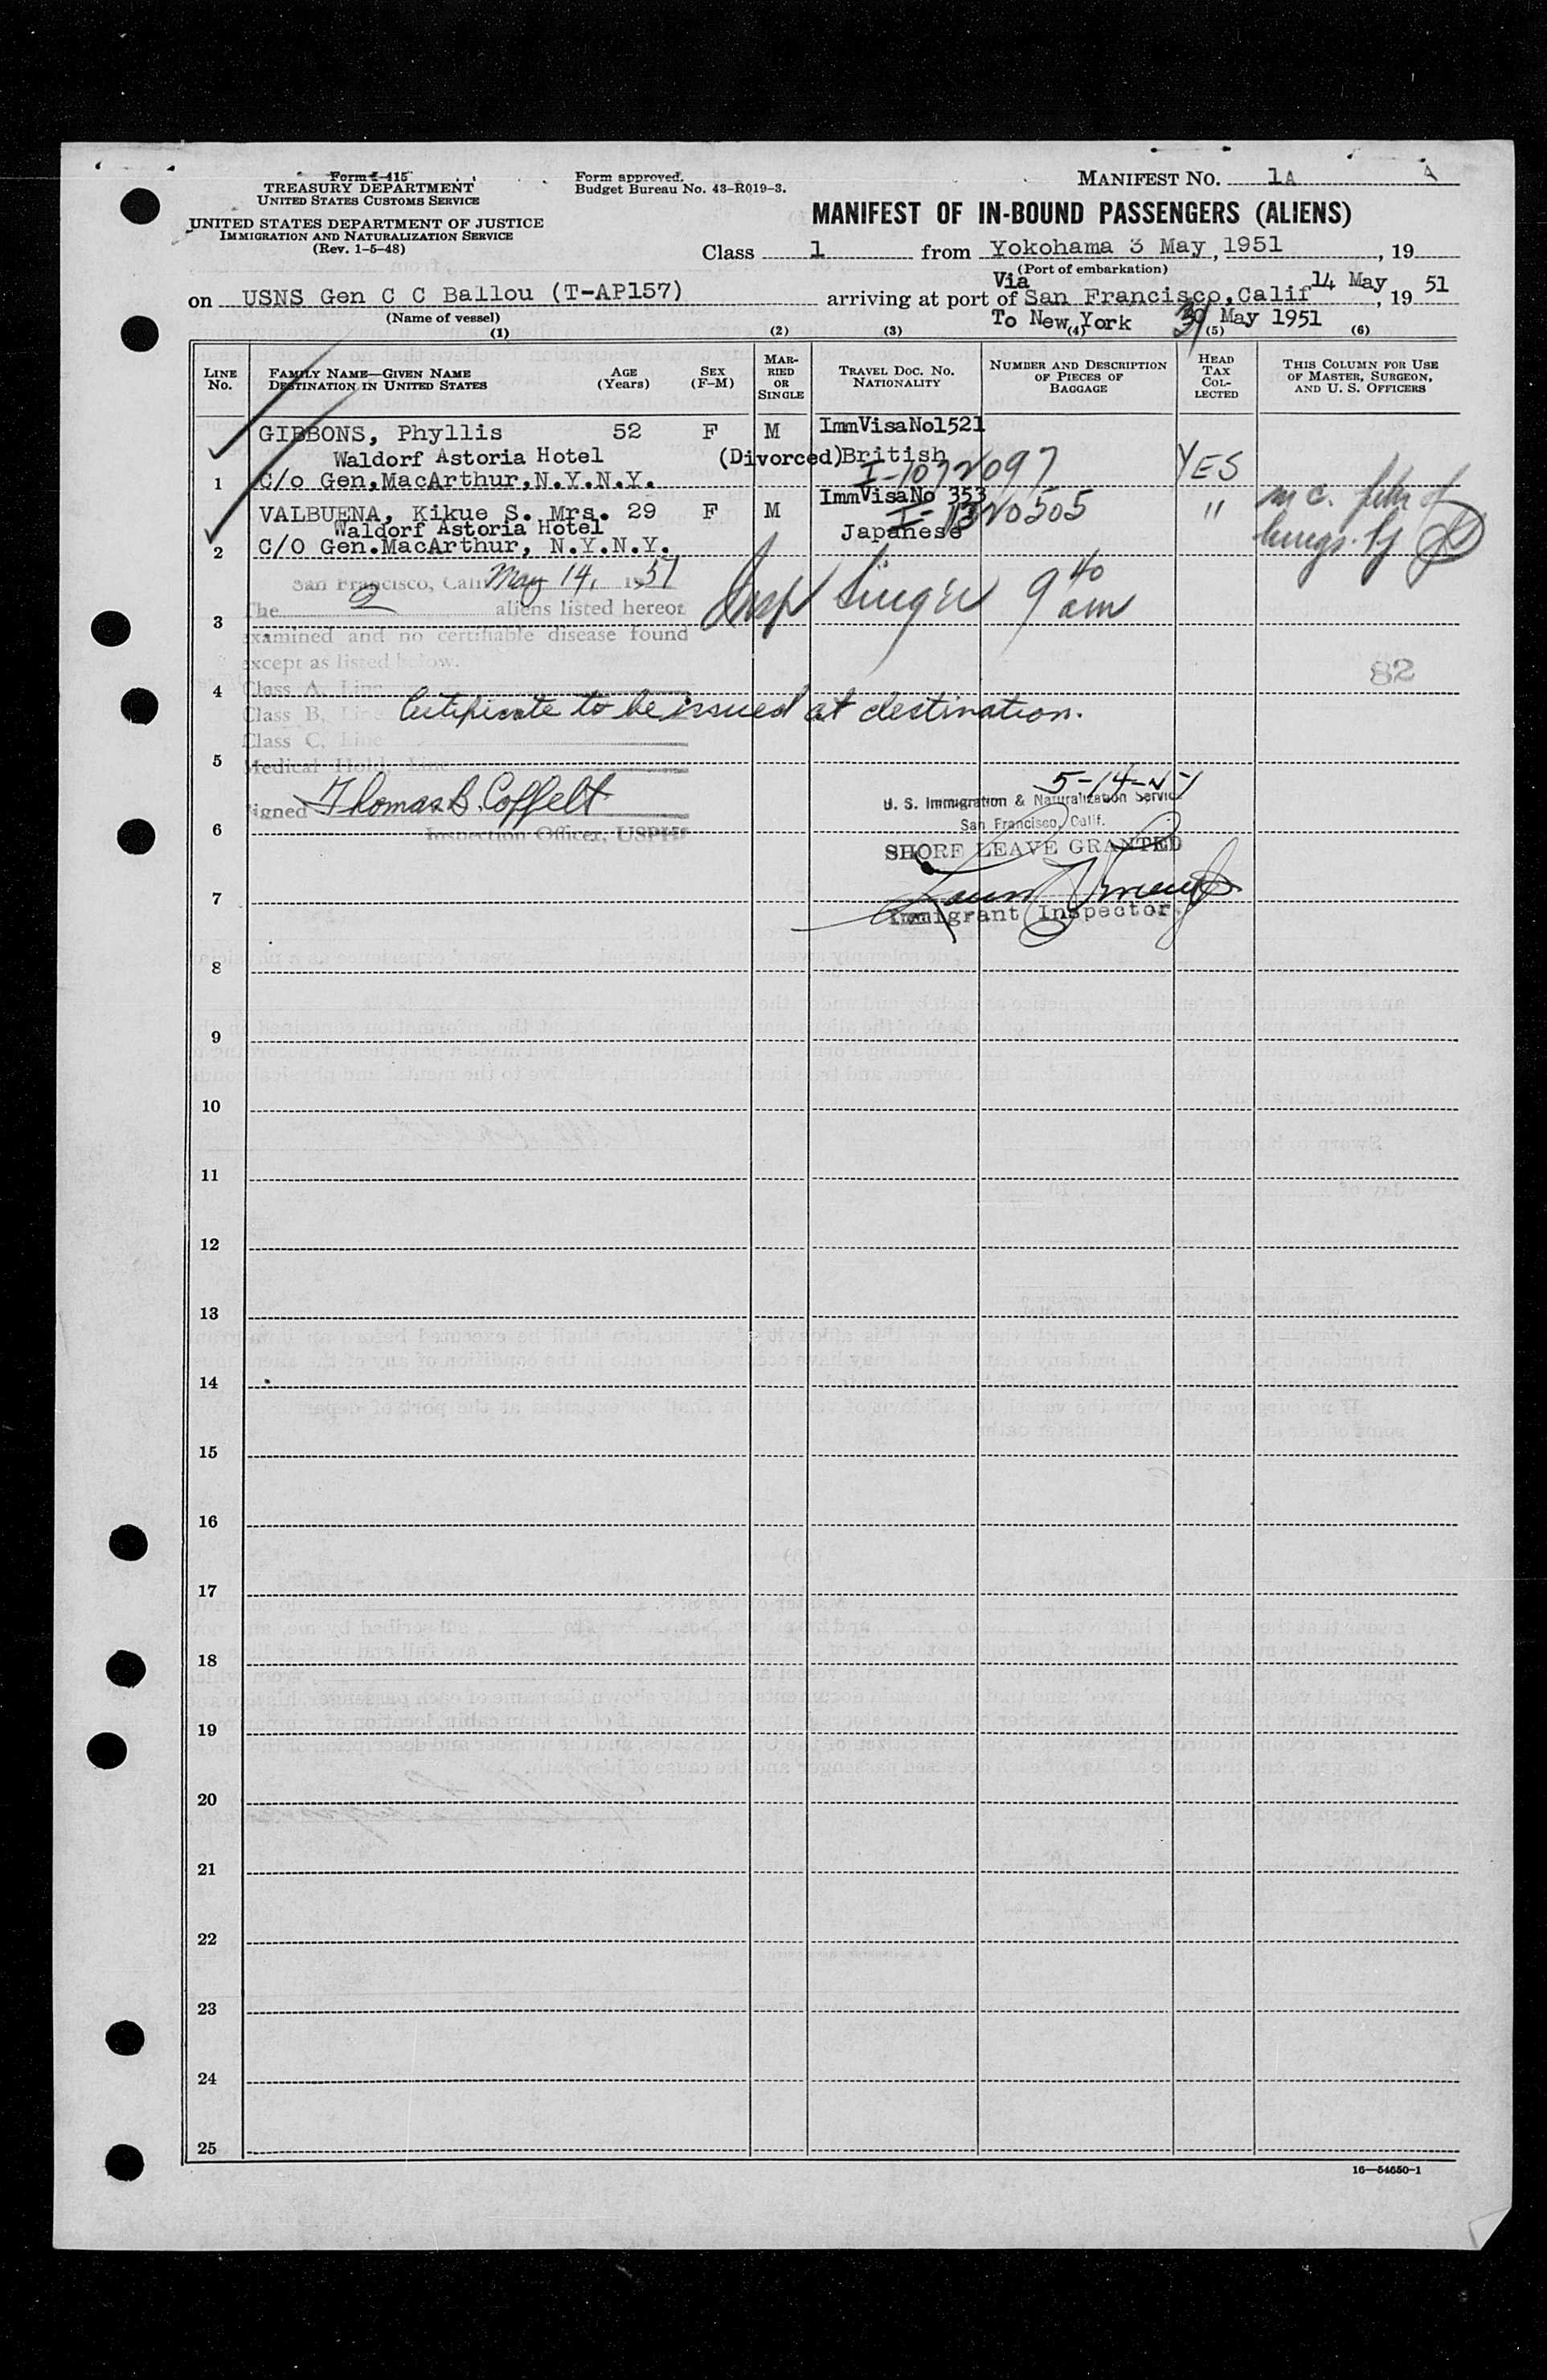 Form I-415
TREASURY DEPARTMENT
UNITED STATES CUSTOMS SERVICE
UNITED STATES DEPARTMENT OF JUSTICE
IMMIGRATION AND NATURALIZATION SERVICE
(Rev. 1-5-48)
Form approved.
Budget Bureau No. 43-R019-3.
MANIFEST NO. 1A
A
MANIFEST OF IN-BOUND PASSENGERS (ALIENS)
Class 1 from Yokohama 3 May, 1951, 19
(Port of embarkation)
on USNS Gen C C Ballou (T-AP157) arriving at port of Via San Francisco, Calif 14 May, 19 51
(Name of vessel)
To New York 31 May 1951
(1) (2) (3) (4) (5) (6)
LINE NO.
FAMILY NAME—GIVEN NAME
DESTINATION IN UNITED STATES
AGE (Years)
SEX (F-M)
MARRIED OR SINGLE
TRAVEL DOC. NO.
NATIONALITY
NUMBER AND DESCRIPTION OF PIECES OF BAGGAGE
HEAD TAX COLLECTED
THIS COLUMN FOR USE OF MASTER, SURGEON, AND U. S. OFFICERS
GIBBONS, Phyllis 52 F M ImmVisaNo1521
Waldorf Astoria Hotel (Divorced) British
1 C/o Gen.MacArthur,N.Y.N.Y. I-1072097 YES
VALBUENA, Kikue S. Mrs. 29 F M ImmVisaNo 353
I-1320505 "
Waldorf Astoria Hotel Japanese
2 C/O Gen.MacArthur, N.Y.N.Y.
San Francisco, Calif May 14, 1951
The 2 aliens listed hereon
Insp Singer 9 40 am
3
examined and no certifiable disease found
except as listed below.
82
4
Class A, Line
Class B, Line
Certificate to be issued at destination.
Class C, Line
5
Medical Hold, Line
Signed Thomas B. Coffelt
Inspection Officer, USPHS
5-14-51
U. S. Immigration & Naturalization Service
San Francisco, Calif.
6
SHORE LEAVE GRANTED
7
Immigrant Inspector.
8
9
10
11
12
13
14
15
16
17
18
19
20
21
22
23
24
25
16—54650-1